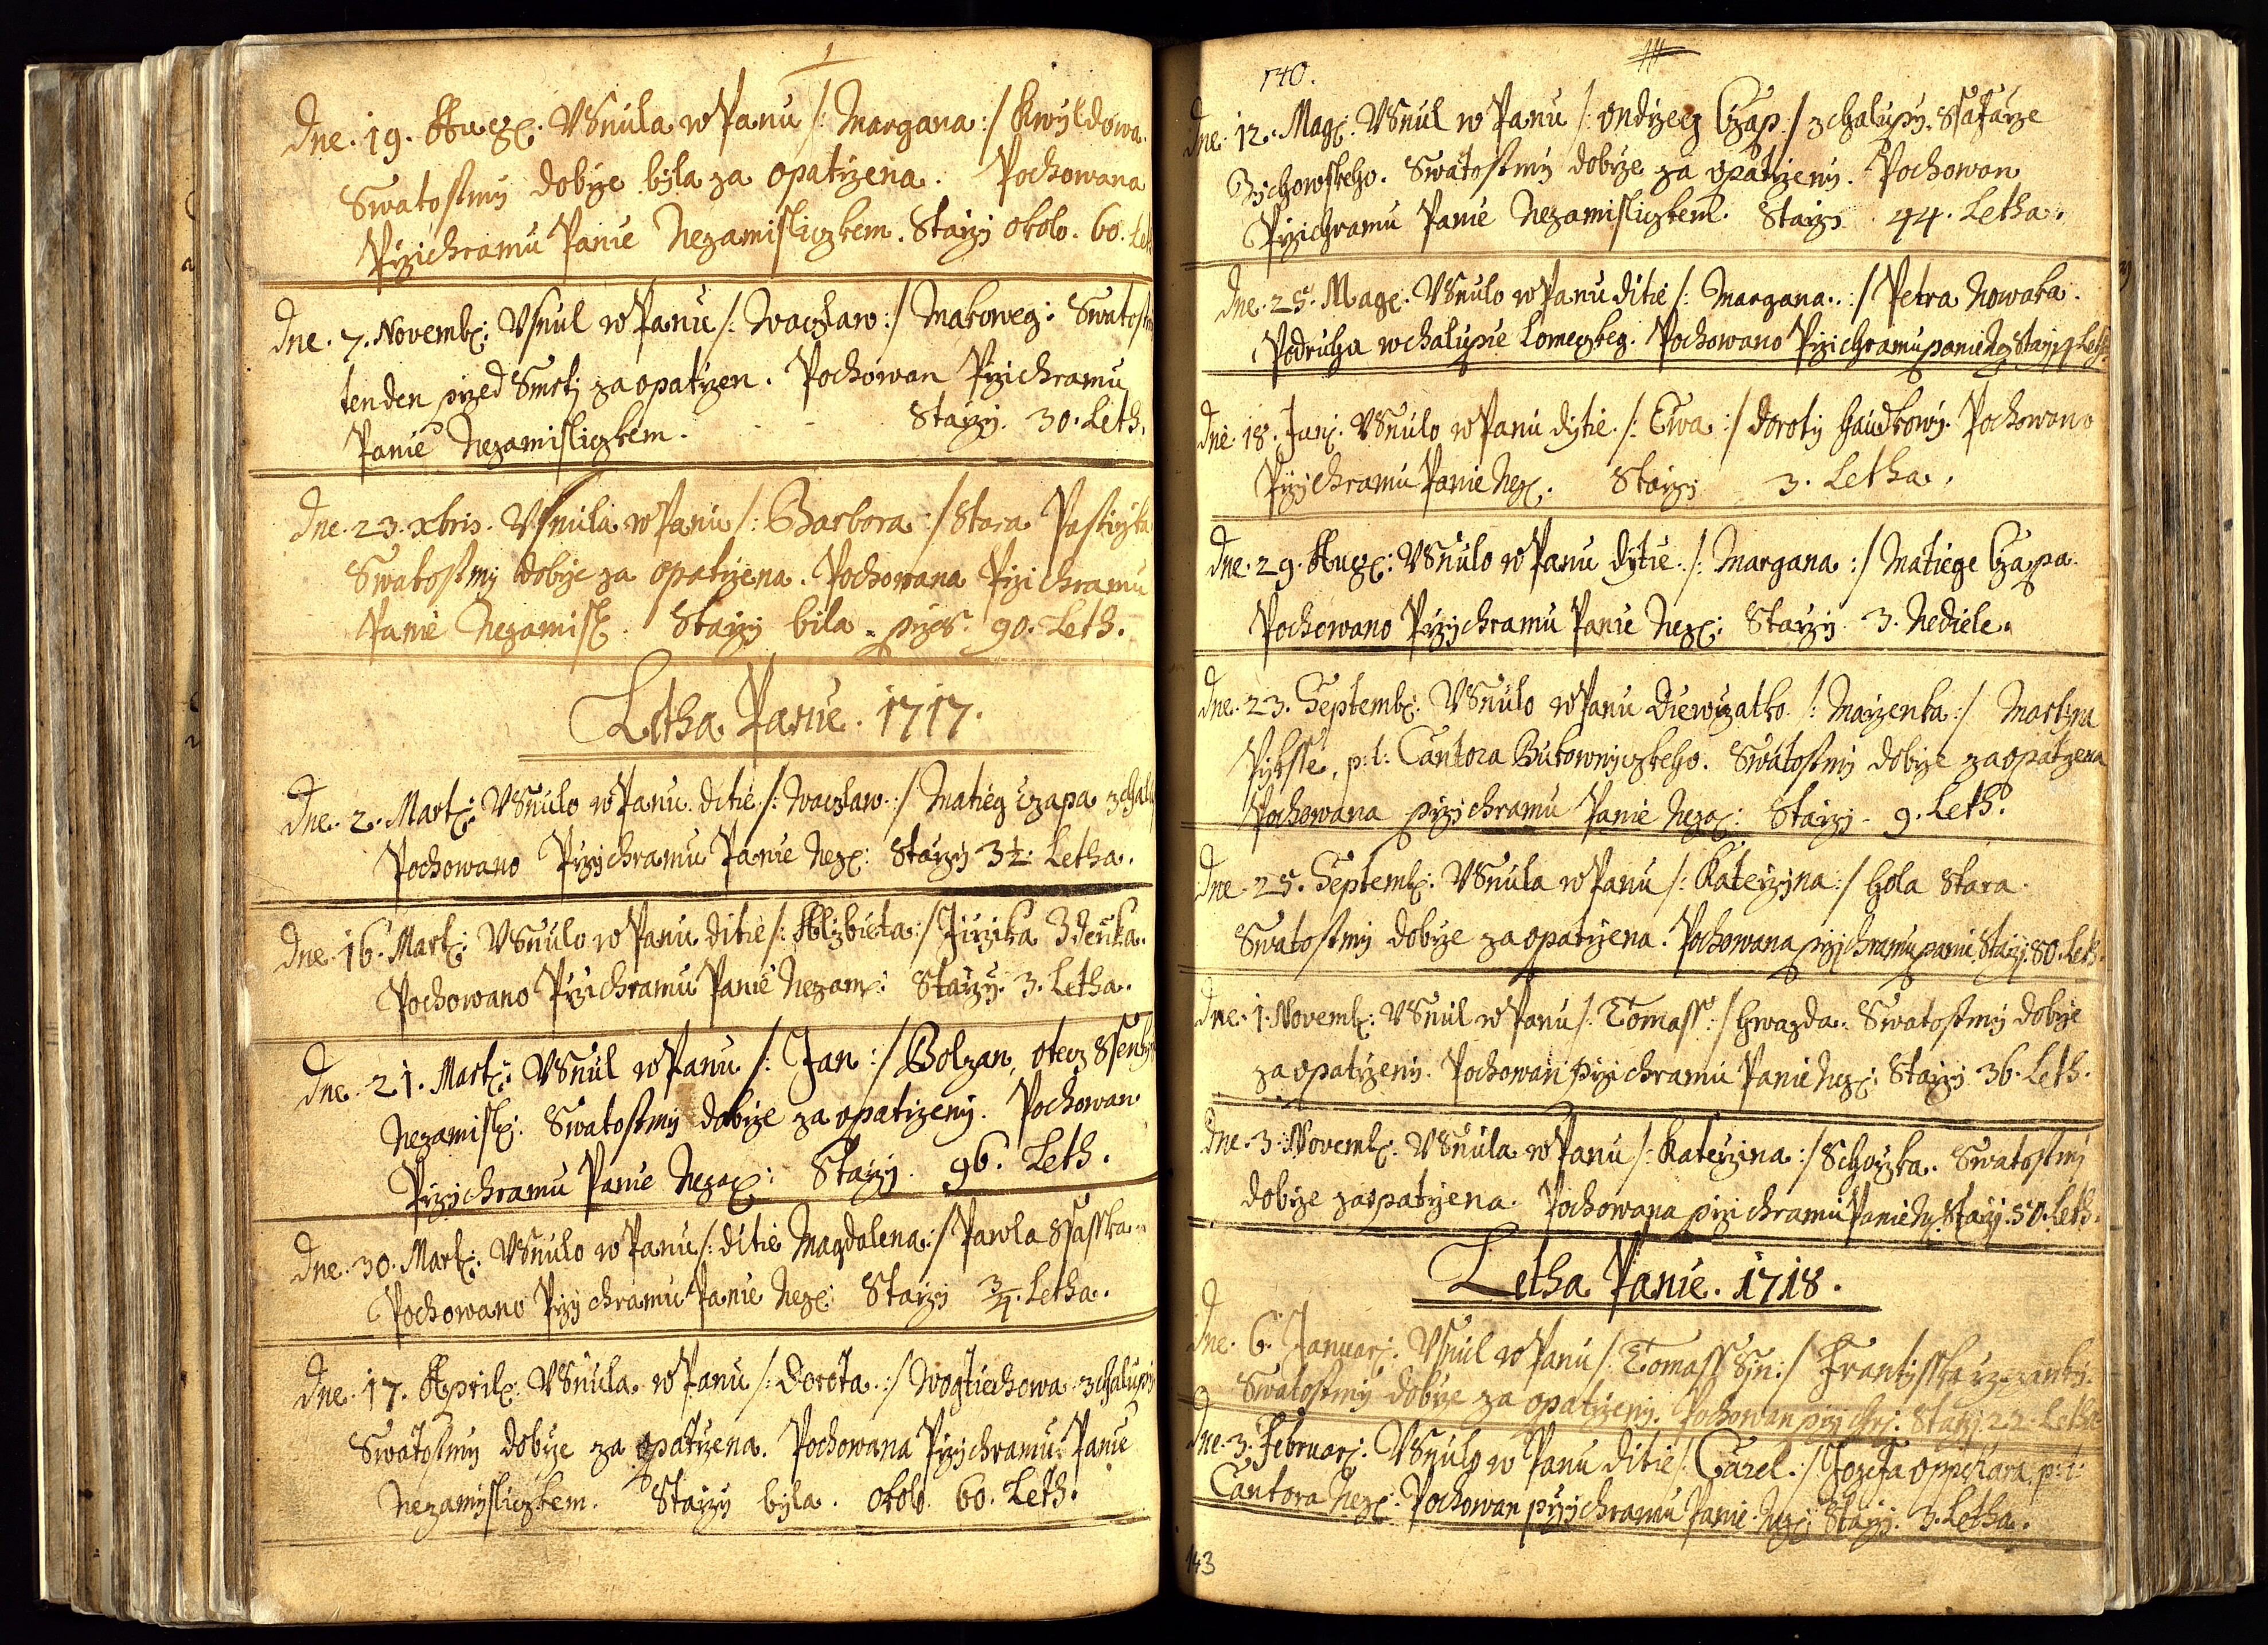 Dne. 19. Aug. VSnula w Panu /: Margana :/ Kwyldowa.
Swatostmi dobrze byla za opatrzena. Pochowana
Przi chramu Panie Nezamisliczkem. Starzj okolo. 60.
Dne. 7. Novemb: Vsnul w Panu /: Waczlaw :/ Makoweg:
tenden przed Smrtj zaopatrzen. Pochowan Przichramu
Panie Nezamisliczkem. Starzj. 30. Leth.
Dne. 23. xbris. Vsnula w Panu /: Barbora :/ Stara
Swatostmj dobrze za opatrzena. Pochowana Przichramu
Panie Nezamisl. Starzj bila przes. 90. Leth.
Letha Panie. 1717.
Dne. 2. Mart: VSnulo w Panu ditie /: Waczlaw :/ Matieg Czapa
Pochowano Przichramu Panie Nez: Starzj 3½ Letha.
Dne. 16. Mart: VSnulo w Panu ditie /: Alzbieta :/ Jirzika Zdenka.
Pochowano Przichramu Panie Nezam: Starzj. 3. Letha.
Dne. 21. Mart: VSnul w Panu /: Jan :/ Bolzan, otecz
Nezamisl: Swatostmj dobrze za opatrzenj. Pochowan
Przichramu Panie Neza: Starzj. 96. Leth.
Dne. 30. Mart: VSnulo w Panu /: ditie Magdalena :/ Pawla Ssasska.
Pochowano Przichramu Panie Nez: Starzj ¾. Letha.
Dne. 17. April: VSnula w Panu /: Dorota :/ Wogtiechowa z chalupj
Swatostmj dobrze za opatrzena. Pochowana Przichramu Panie
Nezamysliczkem. Starzj byla. okolo. 60. Leth.
140.
Dne. 12. Mag. VSnul w Panu /: Ondrzeg Czap :/ z chalupj. Ssafarze
Zichowskeho. Swatostmj dobrze za opatrzenj. Pochowan
Przichramu Panie Nezamisliczkem. Starzj 44. Letha.
Dne. 25. Mag: VSnulo w Panu ditie /: Margana :/ Petra Nowaka.
Podruha w chalupie Lomeczkeg. Pochowano Przichramu panie Nez Starzj Leth.
Dne. 18. Jun. VSnulo w Panu dytie /: Ewa :/ Dorotj Haudkowj. Pochowano
Przichramu Panie Nez. Starzj 3. Letha.
Dne. 29. Aug: VSnulo w Panu dytie /: Margana :/ Matiege Czapa.
Pochowano Przichramu Panie Nez: Starzj. 3. Nediele.
Dne. 23. Septemb: VSnulo w Panu Diewczatko /: Marzenka :/ Martina
Piksse, p:t: Cantora Bukowniczkeho. Swatostmj dobrze zaopatrzena
Pochowana przichramu Panie Neza: Starzj 9. Leth.
Dne. 25. Septemb: VSnula w Panu /: Katerzina :/ Hola Stara.
Swatostmj dobrze zaopatrzena. Pochowana przichramu panie Starzj. 80. Leth.
Dne. 1. Novemb: VSnul w Panu /: Tomass :/ Hwazda. Swatostmj dobrze
zaopatrzenj. Pochowan przichramu Panie Nez: Starzj 36. Leth.
Dne. 3. Novemb: VSnula w Panu /: Katerzina :/ Schorzka. Swatostmj
dobrze zaopatrzena. Pochowana przi chramu Panie Nez. Starzj. 50. Leth.
Letha Panie. 1718.
Dne. 6. Januar: VSnul w Panu /: Tomass Syn :/ Frantisska
Swatostmj dobrze za opatrzenj. Pochowan przi chr: Starzj 22. Letha
Dne. 3. Februar: VSnulo w Panu ditie /: Carel :/ Jozefa p:t:
Cantora Nez: Pochowan przichramu Panie Nez: Starzj. 3. Letha.
143